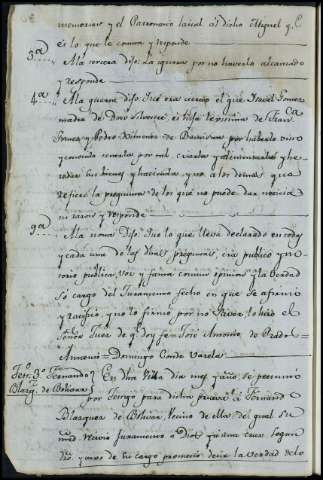 memorias y el Patronato laical a dicho Miguel y C
es lo que le consta y responde
3ª A la tercera dijo: La ignora por no haverla alcanzado
y responde
4ª A la quarta dijo: Que era cierto el que Isavel Gomez
madre de Don Silvestre es hija lexitima de Fran.ca
Franca y Pedro Ximenez de por haberlo visto
y conocido tenerlas por mui criarlas y alimentarlas y he
redar sus bienes y haciendas y no a los demas que
refiere la pregunta de los que no puede dar noticia
ni razon y responde
9ª A la nona dijo: Que lo que lleva declarado en todas
y cada una de las dhas preguntas, era publico y no
torio publica voz y fama comun opinion y la verdad
so cargo del Juramento fecho en que se afirmó
y ratificó, y no lo firmó por no saver lo hizo el
Señor Juez de q.e doy fee = José Antonio de Prado =
Antonio = Domingo Conde Varela
Tes.o 3.o Fernando Blazq.z de Bolivar
En dha Villa dia mes y año, se presentó
por Testigo para dicha a Fernando
Blazquez de Bolivar, vecino de ella, del qual su
md. recivió Juramento a Dios y a una cruz segun
dro. y vajo de su cargo prometió decir la verdad de lo